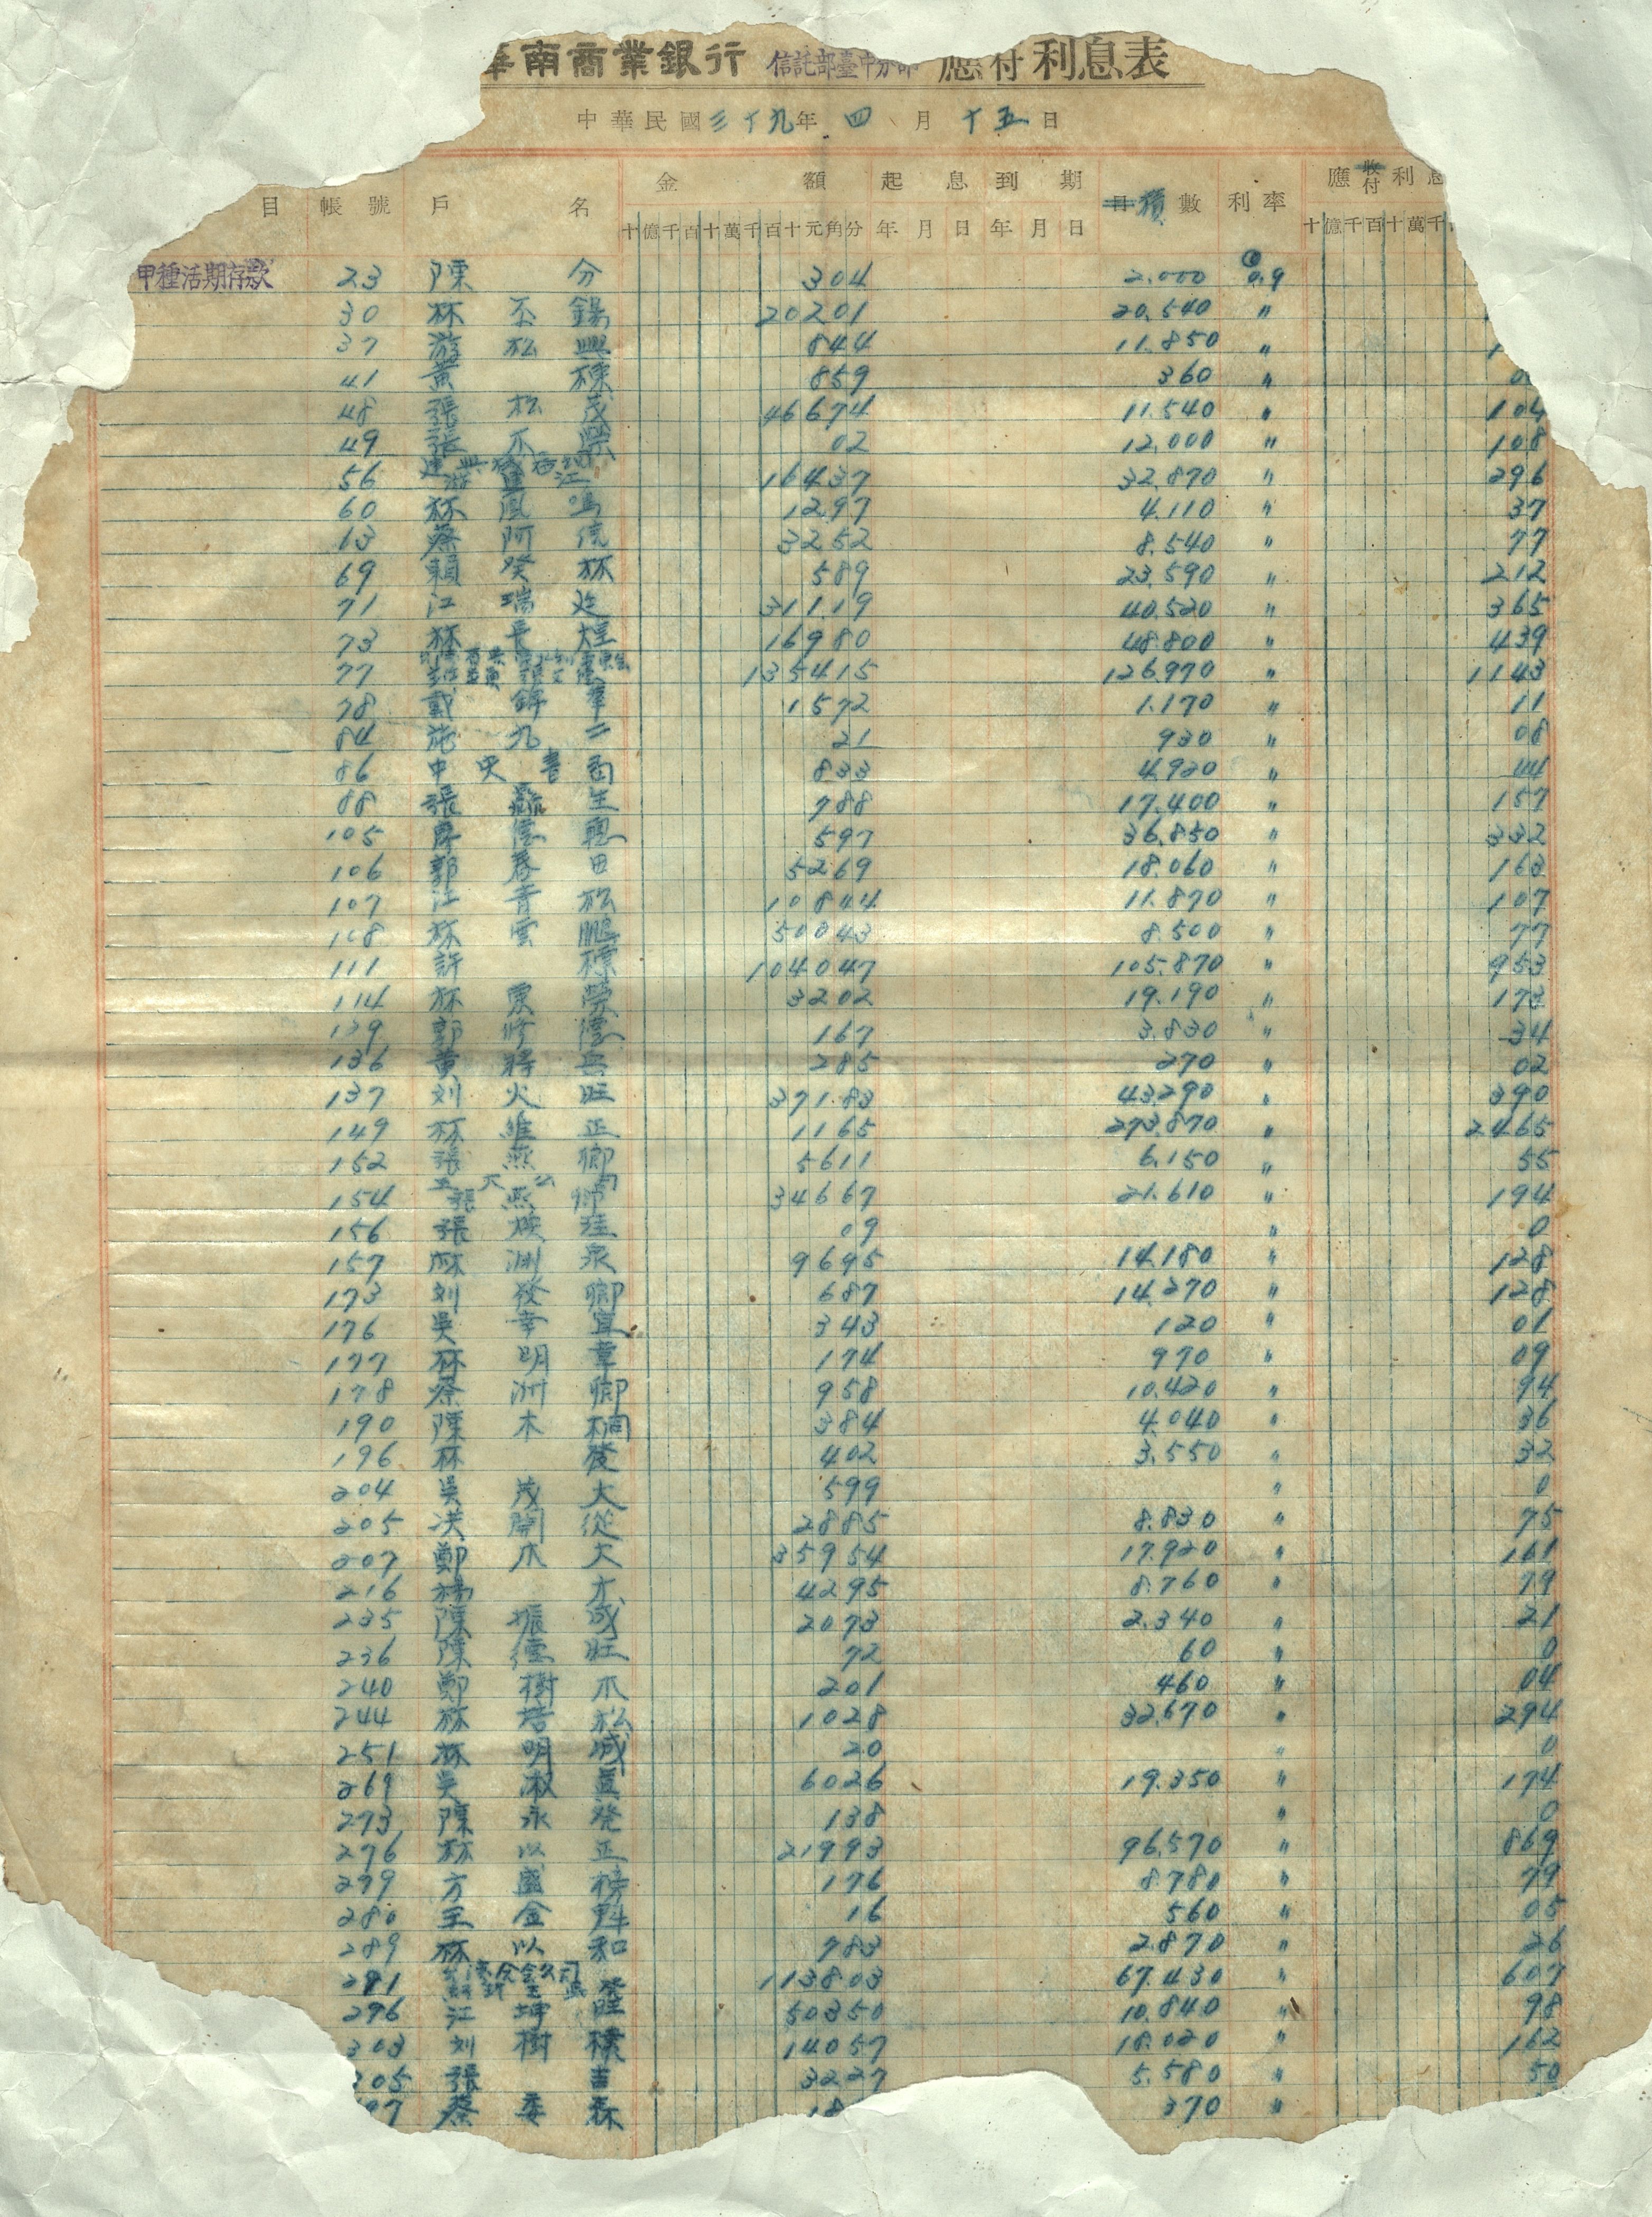 華南商業銀行 信託部臺中分部 應付利息表
中華民國三十九年 四 月 十五 日
目 帳號 戶 名 金 額 起息到期 積數 利率 應收付利息
十億千百十萬千百十元角分 年月日年月日 十億千百十萬千
甲種活期存款 23 陳 分 304 2.000 0.9
30 林 錫 20201 20.540 〃
37 游松興 844 11.850 〃 1
41 黃 棟 859 360 〃
48 張松茂 46674 11.540 〃 104
49 張 榮 02 12.000 〃 108
56 16437 32.870 〃 296
60 林鳳鳴 1297 4.110 〃 37
13 蔡阿 3252 8.540 〃 77
69 賴癸林 589 23.590 〃 212
71 江瑞 31119 40.520 〃 365
73 林長煌 16980 48.800 〃 439
77 135415 126.970 〃 1143
78 戴錦華 1572 1.170 〃 11
84 施九二 21 930 〃 08
86 中央書局 833 4.920 〃 44
88 張 生 788 17.400 〃 157
105 聰 597 36.850 〃 332
106 郭春田 5269 18.060 〃 163
107 江青松 10844 11.870 〃 107
108 林雲鵬 50043 8.500 〃 77
111 許 標 104047 105.870 〃 953
114 林 榮 3202 19.190 〃 173
139 郭修 167 3.830 〃 34
136 黃 285 270 〃 02
137 刘火旺 37183 43.290 〃 390
149 林維正 1165 273.870 〃 2465
152 張燕卿 5611 6.150 〃 55
154 張燕卿 34667 21.610 〃 194
156 張 09 〃 0
157 林淵泉 9695 14.180 〃 128
173 刘發卿 687 14.270 〃 128
176 吳幸 343 120 〃 01
177 林明章 174 970 〃 09
178 蔡洲卿 958 10.420 〃 94
190 陳木桐 384 4.040 〃 36
196 林 發 402 3.550 〃 32
204 吳茂大 599 〃 0
205 洪開從 2885 8.830 〃 75
207 鄭木大 35954 17.920 〃 161
216 楊 4295 8.760 〃 79
235 陳振成 2073 2.340 〃 21
236 陳德旺 72 60 〃 0
240 鄭樹木 201 460 〃 04
244 林培松 1028 32.670 〃 294
251 林明 20 〃 0
269 吳淑 6026 19.350 〃 174
273 陳永發 138 〃 0
276 林以正 21993 96.570 〃 869
279 方盛榜 176 8.780 〃 79
280 王金 16 560 〃 05
289 林以和 783 2.870 〃 26
291 113803 67.430 〃 607
296 江坤旺 50350 10.840 〃 98
303 刘樹 14057 18.020 〃 162
305 張 吉 3227 5.580 〃 50
97 蔡委森 18 370 〃